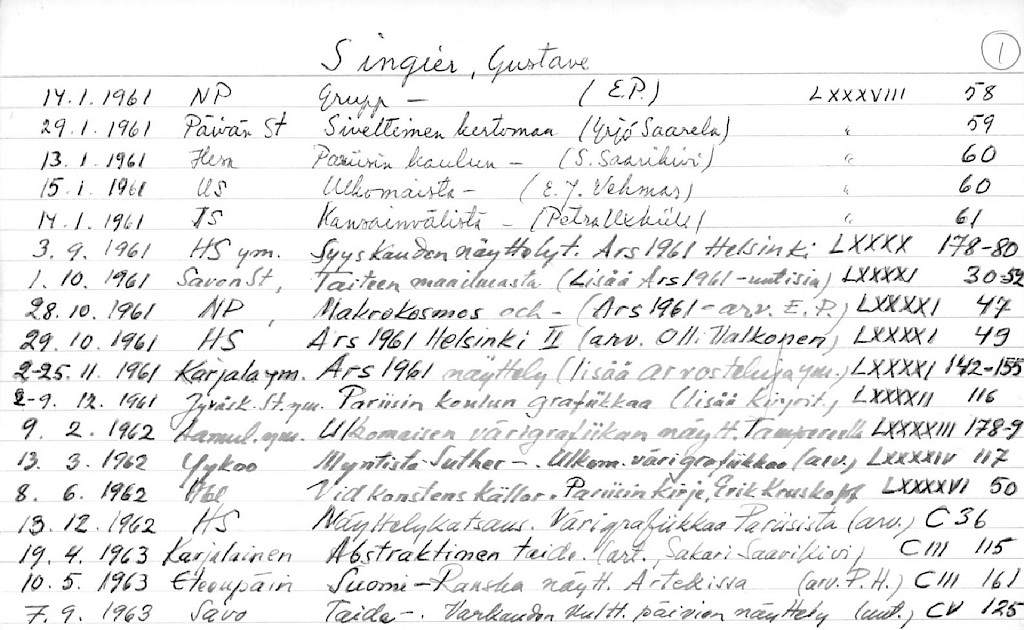 Singier, Gustave 1
14.1.1961 NP Grupp — (E.P.) LXXXVIII 58
29.1.1961 Päivän St Siveltimen kertomaa (Yrjö Saarela) " 59
13.1.1961 Hesa Pariisin koulun — (S. Saarikivi) " 60
15.1.1961 US Ulkomaista — (E.J. Vehmas) " 60
14.1.1961 Kansainvälistä — (Petra Uexküll) " 61
3.9.1961 HS ym. Syyskauden näyttelyt. Ars 1961 Helsinki LXXXX 178-80
1.10.1961 Savon St, Taiteen maailmasta (Lisää Ars 1961 -uutisia) LXXXXI 30-52
28.10.1961 NP, Makrokosmos och — (Ars 1961 - arv. E.P.) LXXXXI 47
29.10.1961 HS Ars 1961 Helsinki II (arv. Olli Valkonen) LXXXXI 49
2-25.11.1961 Karjala ym. Ars 1961 näyttely (lisää arvosteluja ym.) LXXXXI 142-155
2-9.12.1961 Jyväsk. St. ym. Pariisin koulun grafiikkaa (lisää kirjoit., LXXXXII 116
9.2.1962 Aamul. ym. Ulkomaisen värigrafiikan näytt. Tampereella LXXXXIII 178-9
13.3.1962 Yykoo Myntistä Suther —. Ulkom. värigrafiikkaa (arv.) LXXXXIV 117
8.6.1962 Hbl Vid konstens källor. Pariisin kirje, Erik Kruskopf LXXXXVI 50
13.12.1962 HS Näyttelykatsaus. Värigrafiikkaa Pariisista (arv.) C 36
19.4.1963 Karjalainen Abstraktinen taide. (art., Sakari Saarikivi) CIII 115
10.5.1963 Eteenpäin Suomi — Ranska näytt. Artekissa (arv. P.H.) CIII 161
7.9.1963 Savo Taide —. Varkauden kultt. päivien näyttely (uut.) CV 125